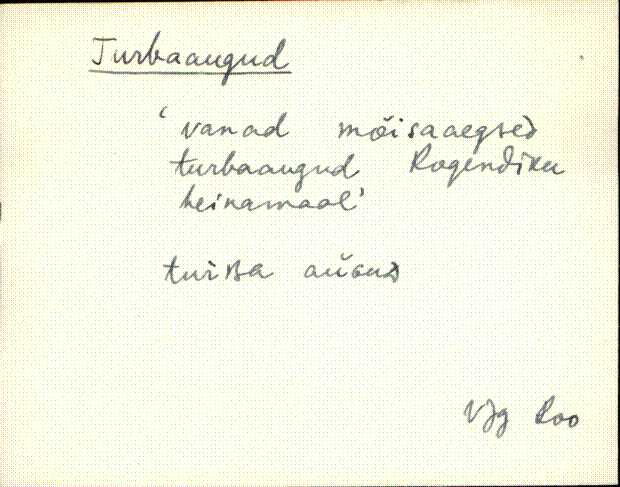 Turbaaugud
'vanad mõisaaegsed
turbaaugud Rogendiku
heinamaal'
turBa
VJg Roo